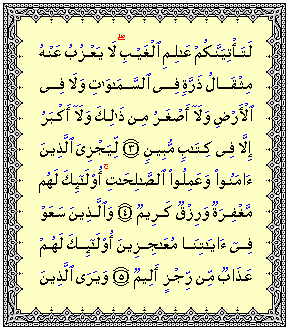 لَتَأْتِيَنَّكُمْ عَـٰلِمِ ٱلْغَيْبِ ۖ لَا يَعْزُبُ عَنْهُ
مِثْقَالُ ذَرَّةٍۢ فِى ٱلسَّمَـٰوَٰتِ وَلَا فِى
ٱلْأَرْضِ وَلَآ أَصْغَرُ مِن ذَٰلِكَ وَلَآ أَكْبَرُ
إِلَّا فِى كِتَـٰبٍۢ مُّبِينٍۢ ﴿٣﴾ لِّيَجْزِىَ ٱلَّذِينَ
ءَامَنُوا۟ وَعَمِلُوا۟ ٱلصَّـٰلِحَـٰتِ ۚ أُو۟لَـٰٓئِكَ لَهُم
مَّغْفِرَةٌۭ وَرِزْقٌۭ كَرِيمٌۭ ﴿٤﴾ وَٱلَّذِينَ سَعَوْ
فِىٓ ءَايَـٰتِنَا مُعَـٰجِزِينَ أُو۟لَـٰٓئِكَ لَهُمْ
عَذَابٌۭ مِّن رِّجْزٍ أَلِيمٌۭ ﴿٥﴾ وَيَرَى ٱلَّذِينَ